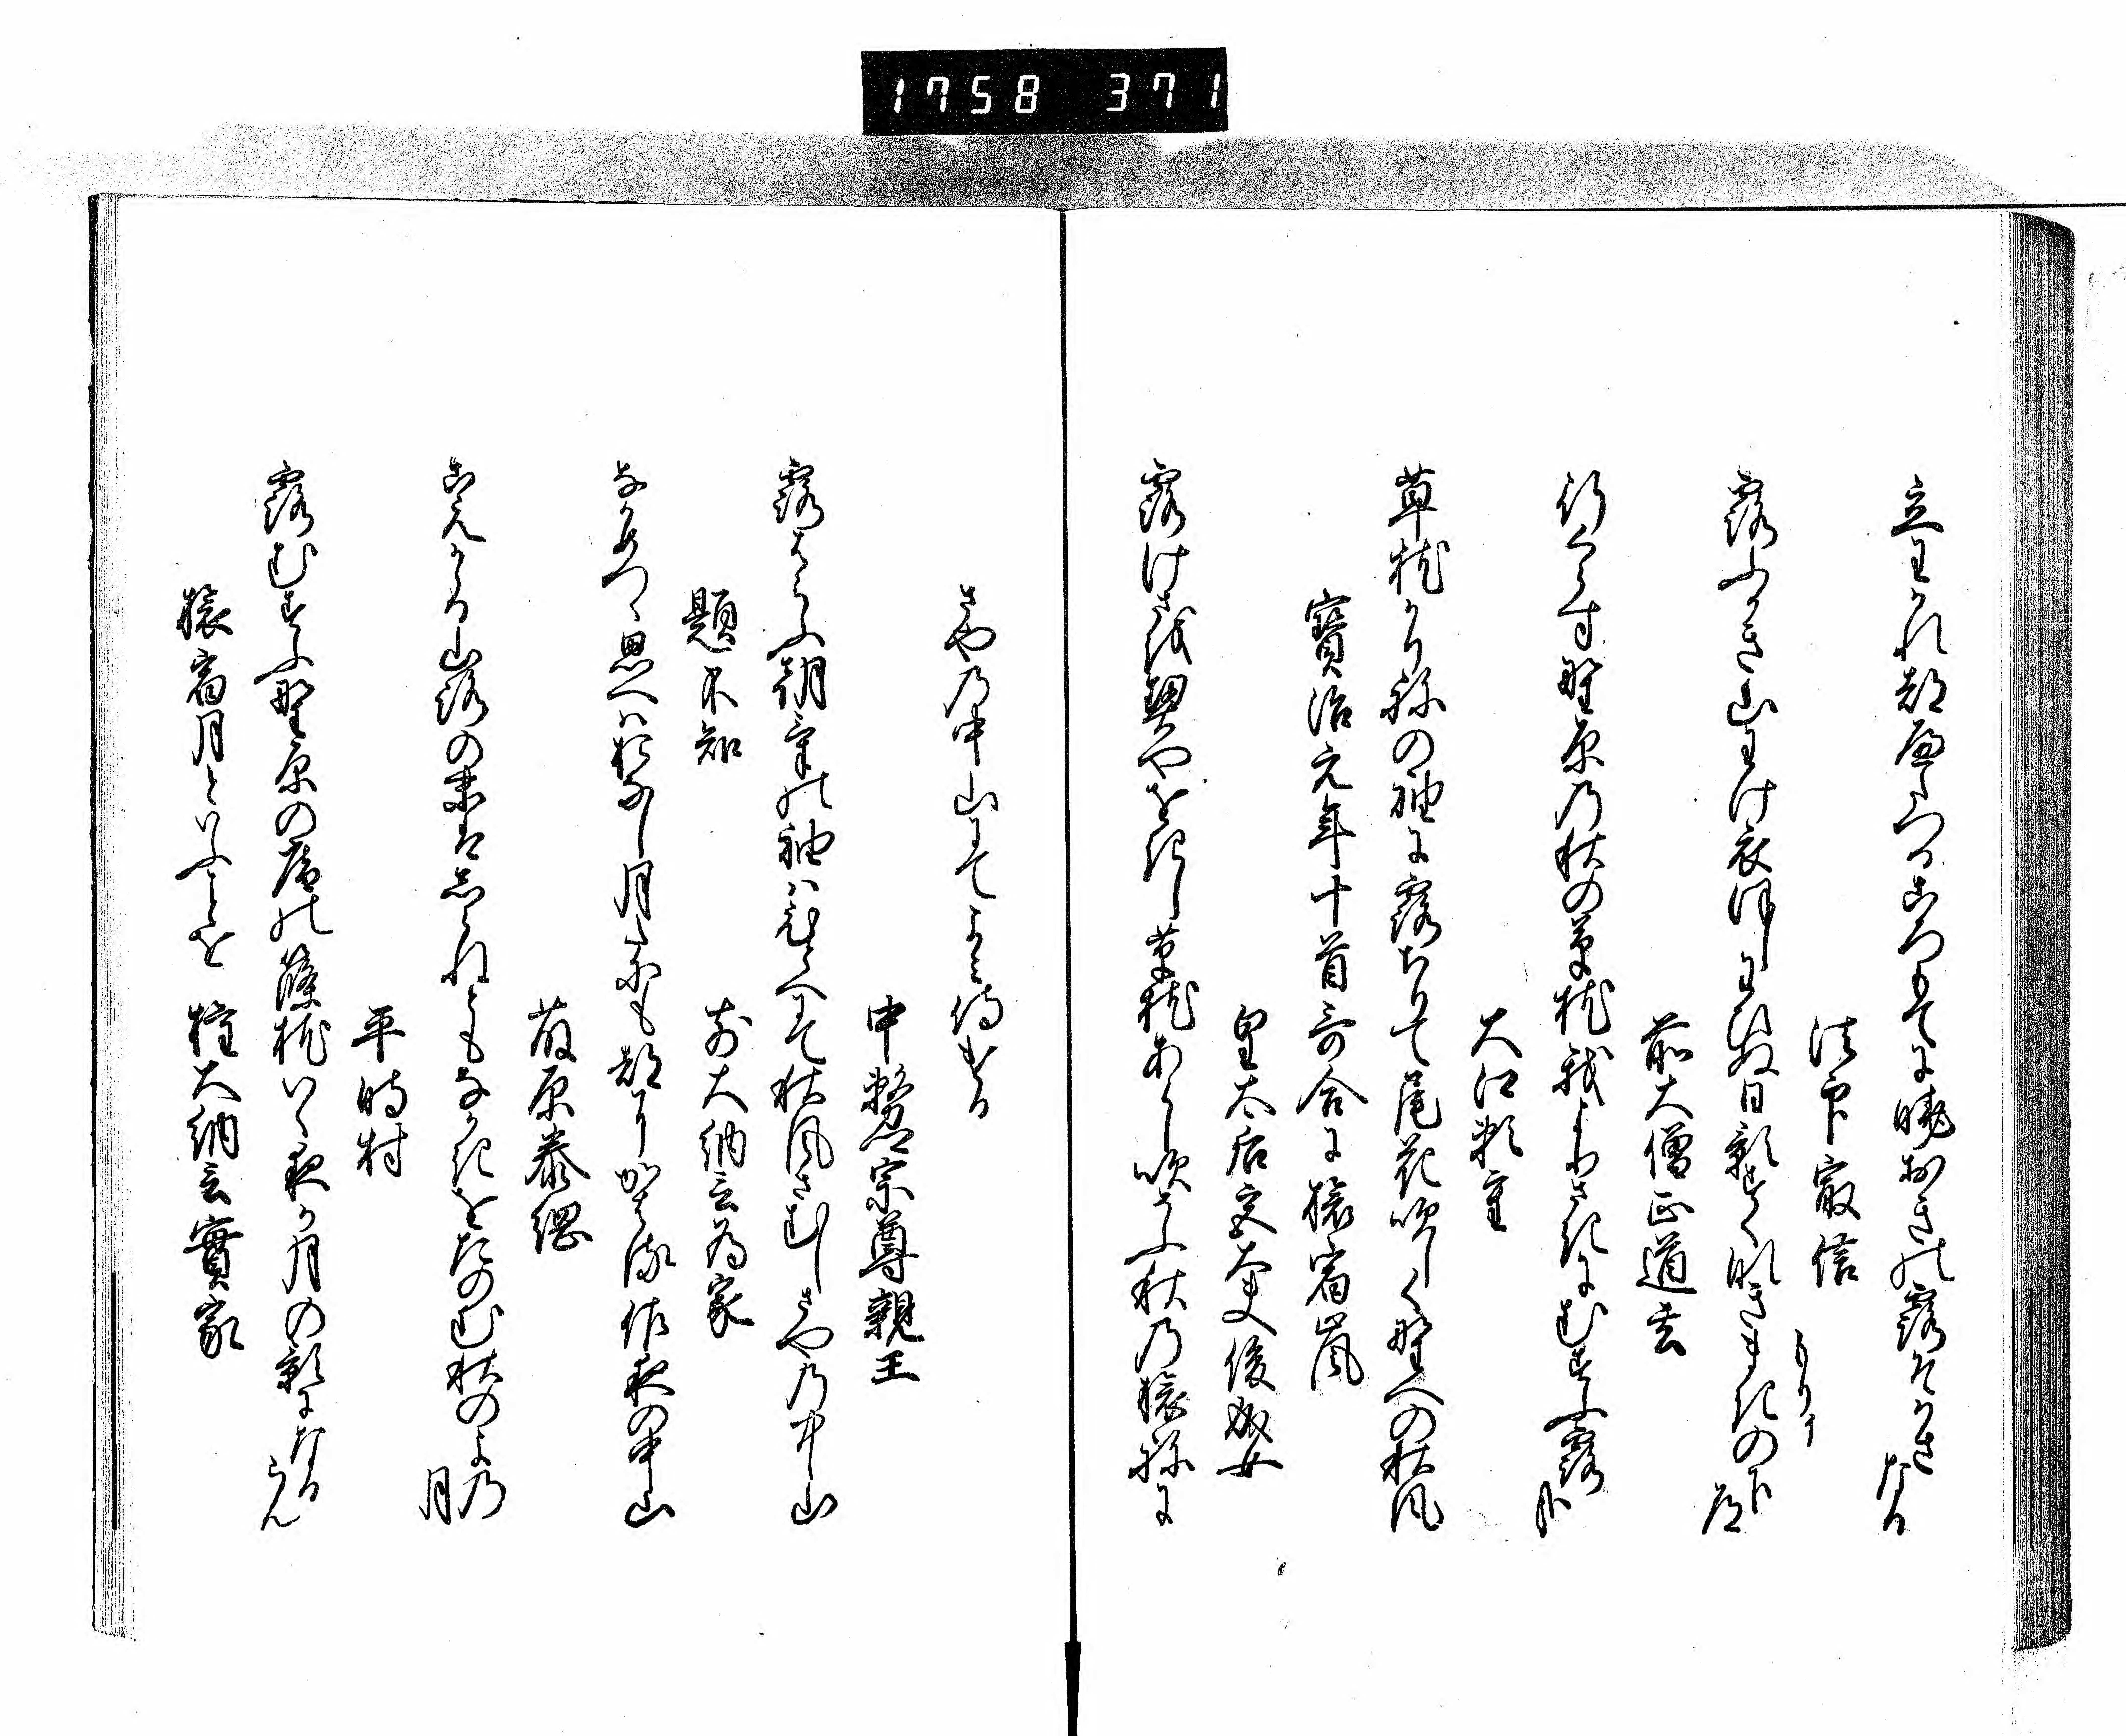 1758 371
立わかれ都へたつる衣てに暁おきの露そかさなる
法印最信
もりイ
露ふかき山わけ衣ほしわひぬ日影すくなきまきの下道
前大僧正道玄
行くらす野原の秋の草枕我よりさきにむすふ露かな
大江頼重
草枕かりねの袖に露ちりて尾花吹しく野への秋風
寳治元年十首哥合に旅宿嵐
皇太后宮大夫俊成女
露けさを契やをきし草枕あらし吹そふ秋の旅ねに
さやの中山にてよみ侍ける
中務卿宗尊親王
露はらふ朝けの袖はひとへにて秋風さむしさやの中山
題不知
前大納言為家
なかめつゝ思へはおなし月たにも都にかはる佐夜の中山
藤原泰綱
こえかゝる山路の末はしらねともなかきをたのむ秋のよの月
平時村
露むすふ野原の庵の篠枕いく夜か月の影になるらん
旅宿月といふことを
権大納言實家